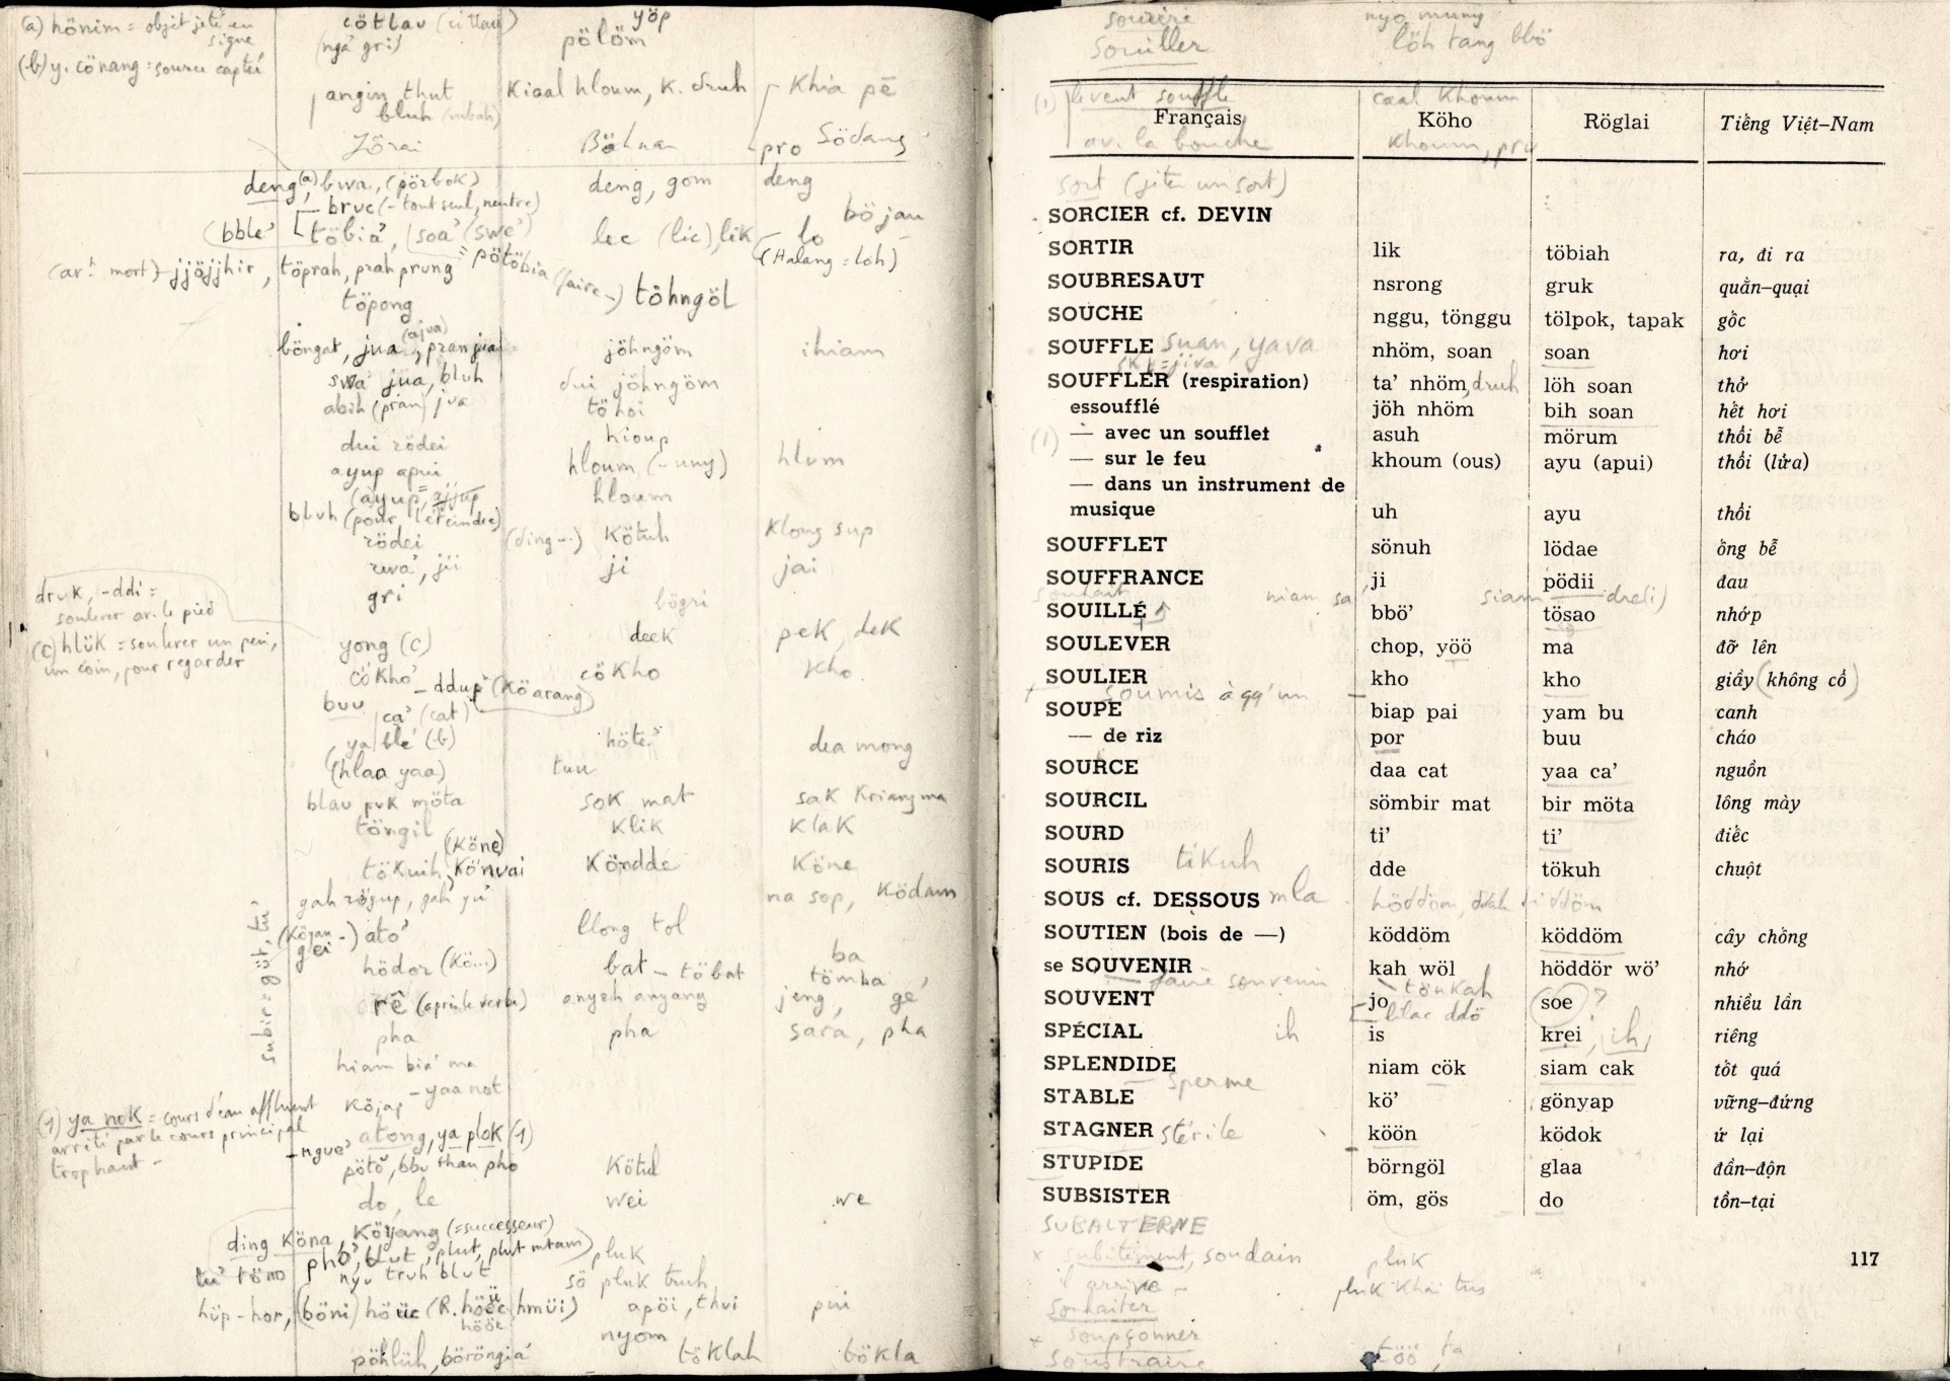 (a) hönim = objet jeté en signe
(b) y. cönang : source captée
cötlau
(ngă gri)
yöp
pölöm
angin thut
bluh (rubah)
Kiaal hloum, K. druh
Khia pē
Jörai
Böhnar
pro Södang
deng (a), bwa, (pörbok)
deng, gom
deng
bruc (- tout seul, neutre)
(bble'
töbia', (soa' (swe')
lec (lic), lik
lo
böjau
(Halang = loh)
jjöjjhir, töprah, prah prung
pötöbia
(faire -)
töhngöl
töpong
böngat, jua (ajva), pran jua
jöhngöm
ihiam
swa' jua, bluh
dui jöhngöm
abih (pran) jva
töhoi
dui rödei
hioup
ayup apui
hloum (- uny)
hlum
(ayup, ajjup
hloum
bluh (pour l'éteindre)
rödei
(ding -)
Kötuh
Klong sup
rwa', jii
ji
jai
gri
bögri
druk, -ddi =
soulever av. le pied
(c) hlük = soulever un peu,
un coin, pour regarder
yong (c)
deek
pek, dek
cökho'
- ddup (Köarang)
cökho
Kho
buu
ca' (cat)
ya ble' (b)
höte'
dea mong
(hlaa yaa)
tuu
blau puk möta
sok mat
sak Kriang ma
töngil
klik
klak
(Köne)
tökuih, Könvai
Köndde
Köne
gah rögup, gah yu'
na sop, Ködam
(Köyau -) ato'
gei
llong tol
hödor (Kö...)
bat - töbat
ba
tömba
rē (après le verbe)
anyeh anyang
jeng, ge'
pha
pha
sara, pha
hiam bia' ma
- yaa not
Köjap
(1) ya nok = cours d'eau affluent
arrêté par le cours principal
trop haut -
- ngue'
atong, ya plok (1)
pötö, bbu than pho
Kötul
do, le
wei
we
ding Köna, Köyang (= successeur)
pho', blut, plut, plut mtam)
pluk
nyu truh blut
sö pluk truh
hüp - hor, (böni) höüc (R. höëc, hmüi)
apöi, thui
pui
nyom
pöhlüh, böröngia'
töklah
tökla
subir = güt, tu'
sourire
nyo mumy
Souiller
löh tang bbö
(1) le vent souffle
caal Khoum
Français Köho Röglai Tiếng Việt-Nam
av. la bouche
Khoum, pru
sort (jeter un sort)
SORCIER cf. DEVIN
SORTIR lik töbiah ra, đi ra
SOUBRESAUT nsrong gruk quằn-quại
SOUCHE nggu, tönggu tölpok, tapak gốc
SOUFFLE suan, yava nhöm, soan soan hơi
skt = jiva
SOUFFLER (respiration) ta' nhöm, druh löh soan thở
essoufflé jöh nhöm bih soan hết hơi
(1) — avec un soufflet asuh mörum thổi bễ
— sur le feu khoum (ous) ayu (apui) thổi (lửa)
— dans un instrument de
musique uh ayu thổi
SOUFFLET sönuh lödae ống bễ
SOUFFRANCE ji pödii đau
souhait
niam sa'
siam drei)
SOUILLÉ bbö' tösao nhớp
SOULEVER chop, yöö ma đỡ lên
SOULIER kho kho giầy (không cổ)
soumis à qq'un
SOUPE biap pai yam bu canh
— de riz por buu cháo
SOURCE daa cat yaa ca' nguồn
SOURCIL sömbir mat bir möta lông mày
SOURD ti' ti' điếc
SOURIS tikuh dde tökuh chuột
SOUS cf. DESSOUS mla höddöm, ddah diddöm
SOUTIEN (bois de —) köddöm köddöm cây chống
se SOUVENIR kah wöl höddör wö' nhớ
- faire souvenir
- tönkah
SOUVENT jo soe ? nhiều lần
lilac ddö
SPÉCIAL ih is krei, ih, riêng
SPLENDIDE niam cök siam cak tốt quá
— sperme
STABLE kö' gönyap vững-đứng
STAGNER stérile köön ködok ứ lại
STUPIDE börngöl glaa đần-độn
SUBSISTER öm, gös do tồn-tại
SUBALTERNE
x subitement, soudain
pluk
117
il arrive -
pluk Kha tus
Souhaiter
x soupçonner
soustraire
töö, ta